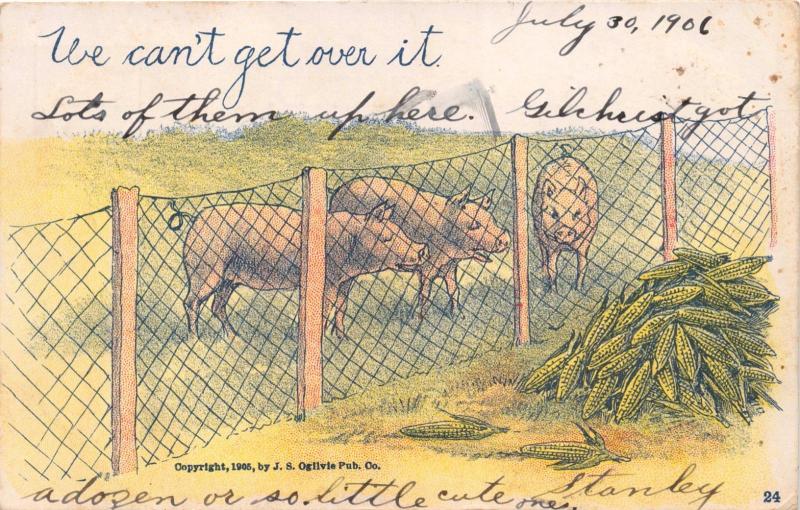 July 30, 1906
We can't get over it.
Lots of them up here. Gilchrist got
Copyright, 1905, by J. S. Ogilvie Pub. Co.
a dozen or so little cute ones. Stanley
24